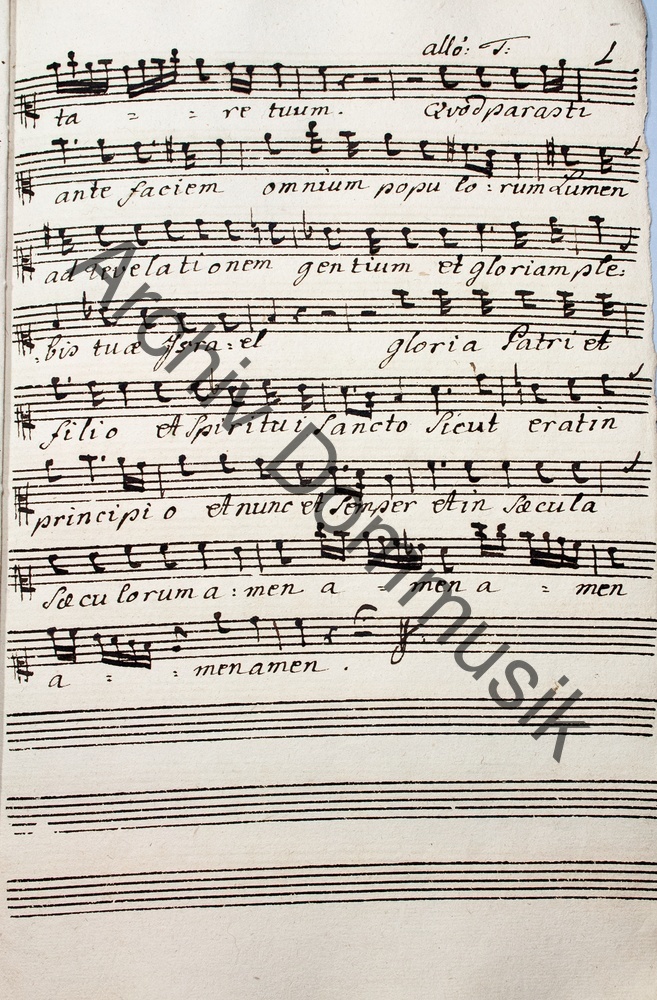 allo: T:
ta = = re tuum. Qvod parasti
ante faciem omnium popu lo: rum Lumen
ad revelationem gentium et gloriam ple:
:bis tuæ Jsra: el gloria Patri et
filio et Spiritui Sancto Sicut erat in
principio et nunc et Semper et in Sæcula
Sæculorum a: men a men a = men
a = = men amen.
Archiv Dommusik